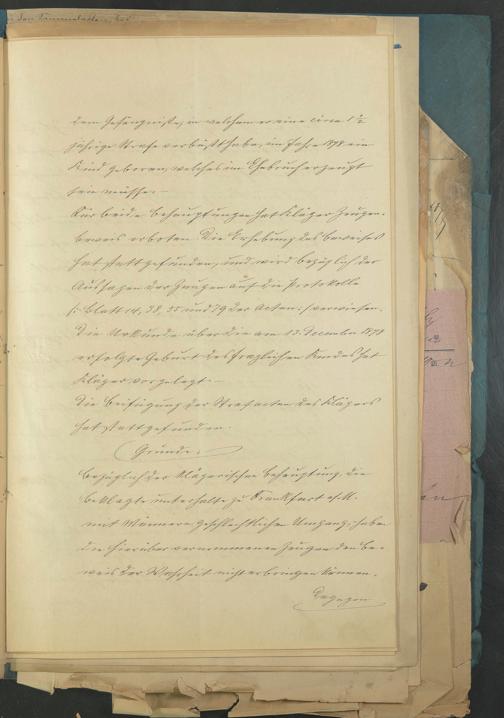 dem Gefängnisse, in welchem er eine circa 1½
jährige Strafe verbüßt habe, im Jahr 1878 ein
Kind geboren, welches im Ehebruch erzeugt
sein müsse. -
Für beide Behauptungen hat Kläger Zeugen-
beweis erboten. Die Erhebung des Beweises
hat stattgefunden, und wird bezüglich der
Aussagen der Zeugen auf die Protokolle
/: Blatt 14, 38, 55 und 79 der Acten :/ verwiesen.
Die Urkunde über die am 13. December 1878
erfolgte Geburt des fraglichen Kindes hat
Kläger vorgelegt. -
Die Beifügung der Strafacten des Klägers
hat stattgefunden.
Gründe:
Bezüglich der klägerischen Behauptung, die
Beklagte unterhalte zu Frankfurt a/M.
mit Männern geschlechtlichen Umgang, haben
die hierüber vernommenen Zeugen den Be-
weis der Wahrheit nicht erbringen können.
Dagegen